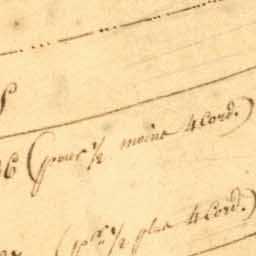 6 (pour ½ moins 4 Cord.)
(pr. ½ plus 4 Cord.)